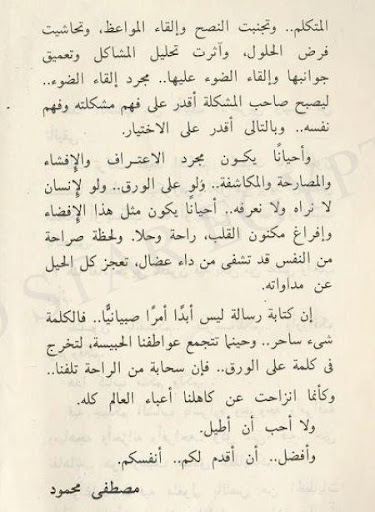 المتكلم.. وتجنبت النصح وإلقاء المواعظ، وتحاشيت
فرض الحلول، وآثرت تحليل المشاكل وتعميق
جوانبها وإلقاء الضوء عليها.. مجرد إلقاء الضوء..
ليصبح صاحب المشكلة أقدر على فهم مشكلته وفهم
نفسه.. وبالتالى أقدر على الاختيار.
وأحيانًا يكون مجرد الاعتراف والإفشاء
والمصارحة والمكاشفة.. ولو على الورق.. ولو لإنسان
لا نراه ولا نعرفه.. أحيانًا يكون مثل هذا الإفضاء
وإفراغ مكنون القلب، راحة وحلا. ولحظة صراحة
من النفس قد تشفى من داء عضال، تعجز كل الحيل
عن مداواته.
إن كتابة رسالة ليس أبدًا أمرًا صبيانيًّا.. فالكلمة
شىء ساحر.. وحينما تتجمع عواطفنا الحبيسة، لتخرج
فى كلمة على الورق.. فإن سحابة من الراحة تلفنا..
وكأنما انزاحت عن كاهلنا أعباء العالم كله.
ولا أحب أن أطيل.
وأفضل.. أن أقدم لكم.. أنفسكم.
مصطفى محمود